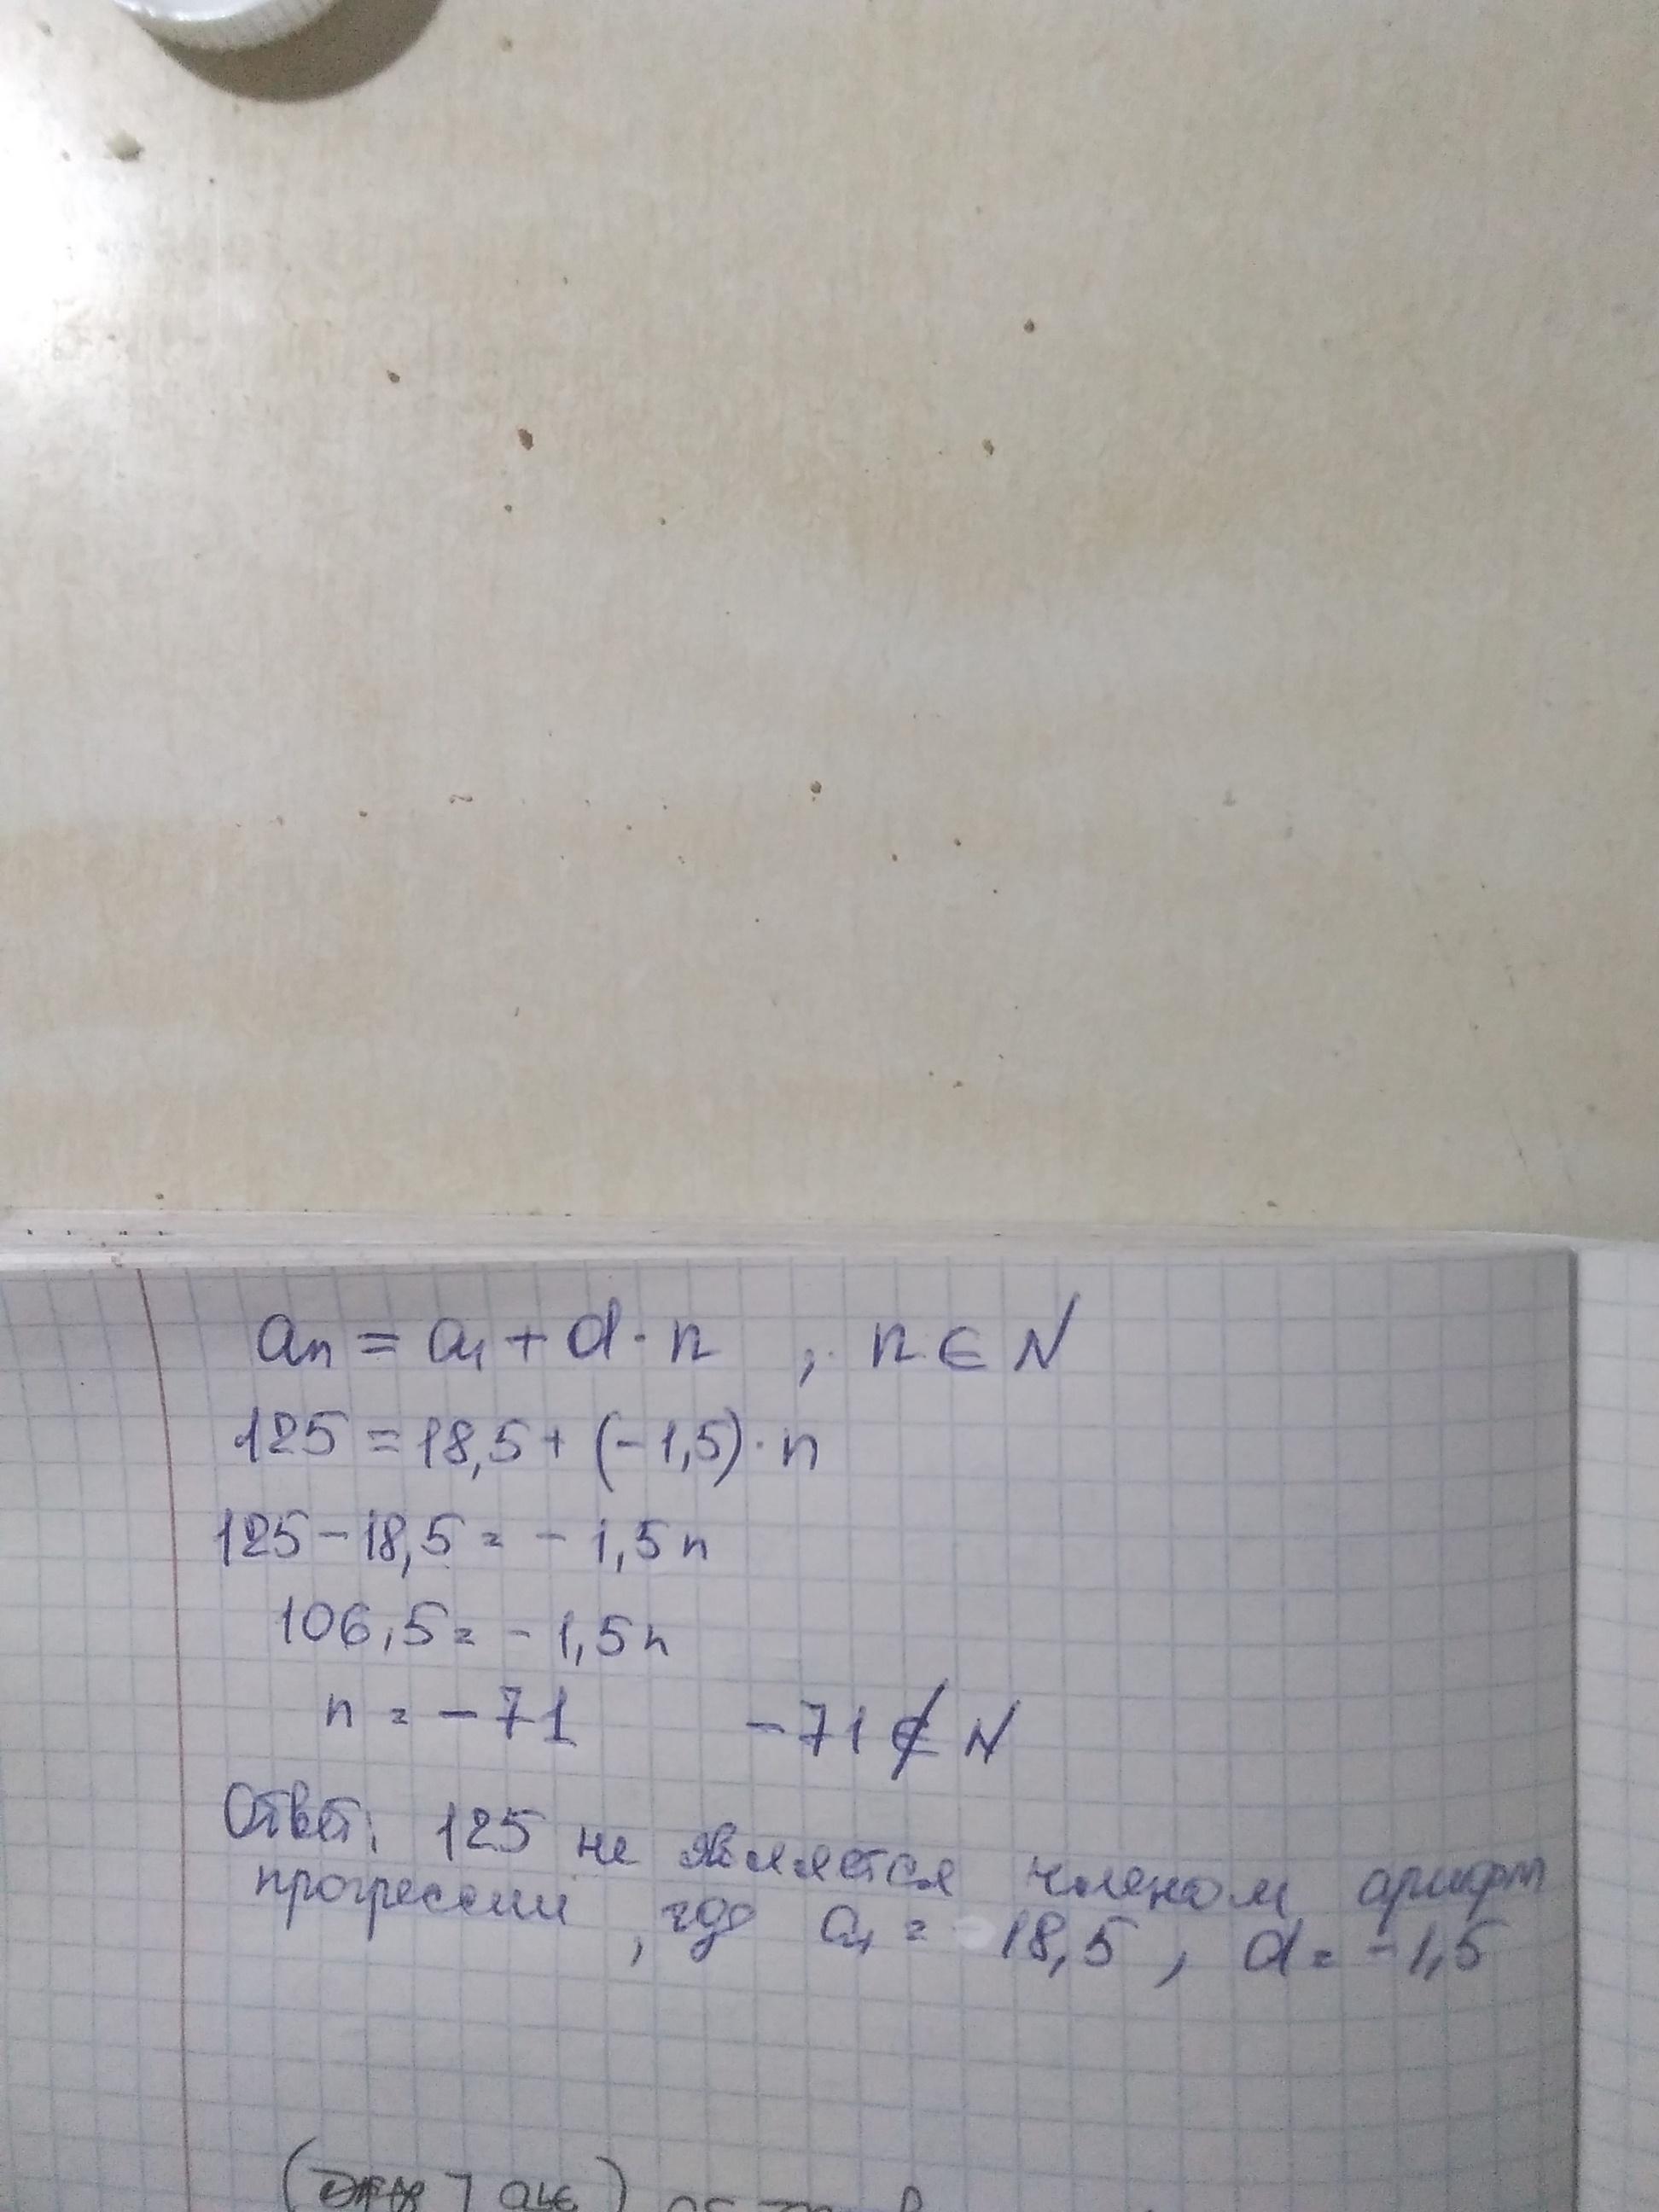 an = a1 + d · n , n ∈ N
125 = 18,5 + (-1,5) · n
125 - 18,5 = - 1,5n
106,5 = - 1,5n
n = - 71 - 71 ∉ N
Ответ: 125 не является членом арифм
прогрессии, где a1 = 18,5, d = -1,5